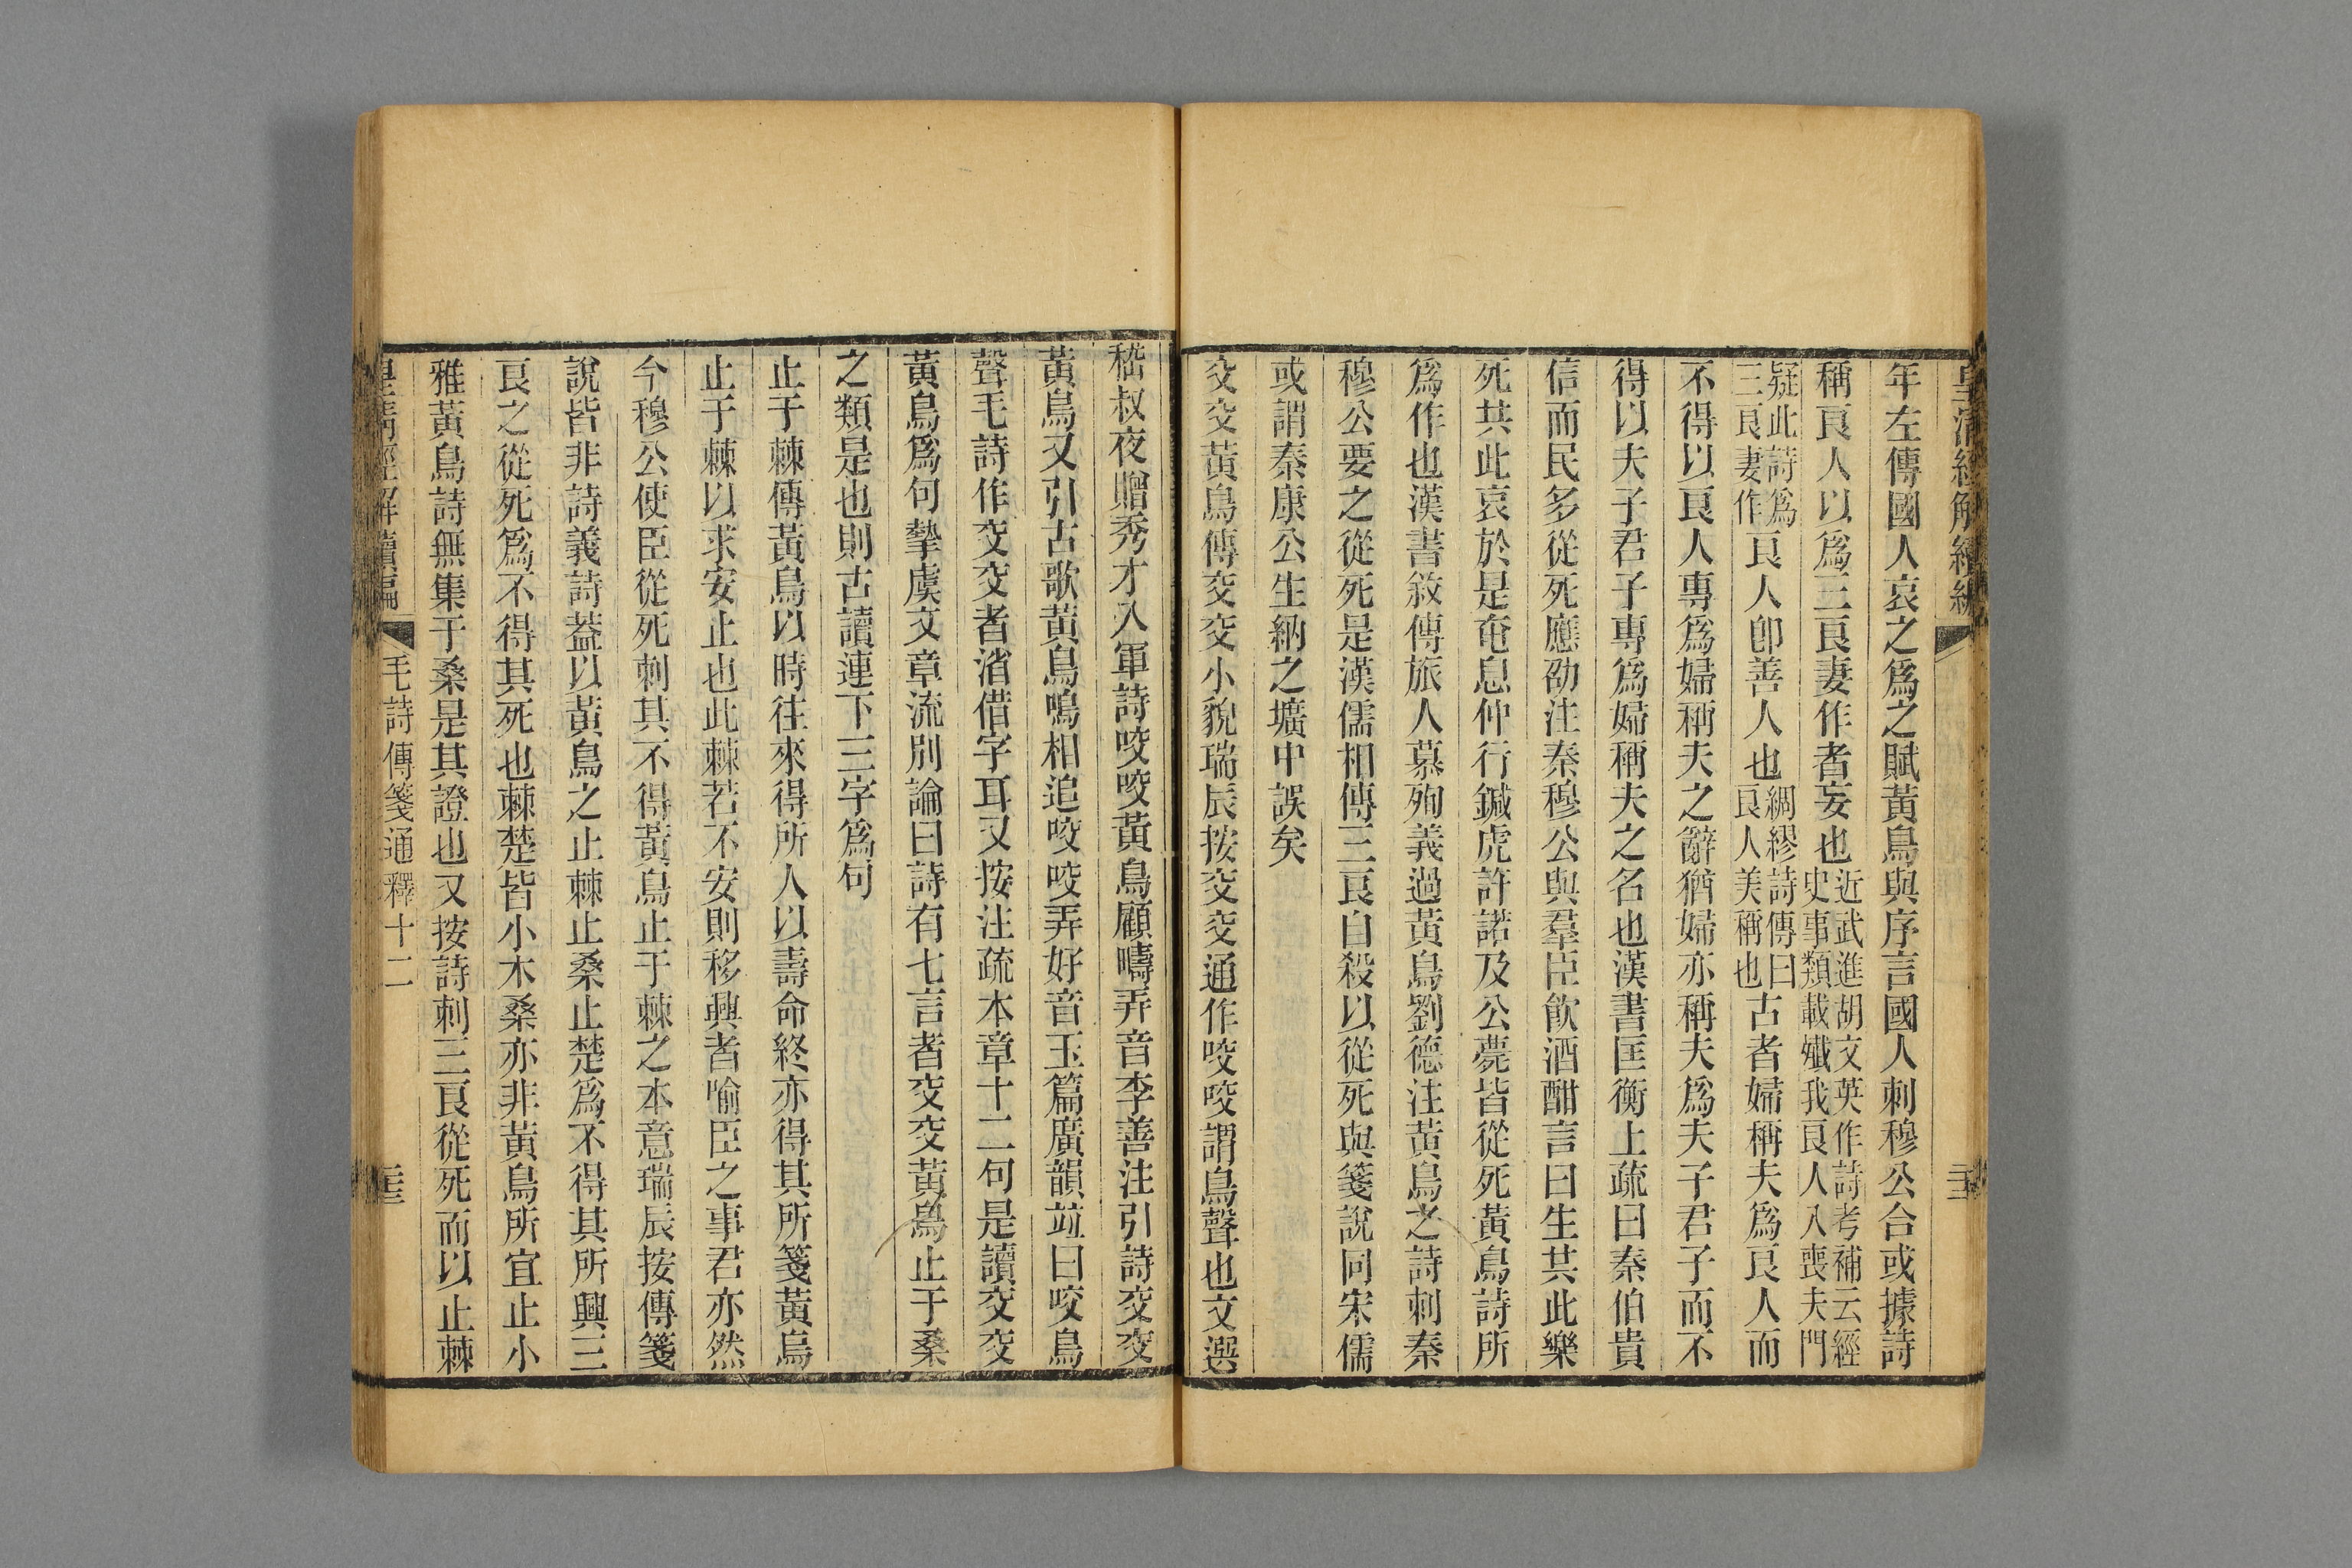 皇清經解續編
年左傳國人哀之爲之賦黃鳥與序言國人刺穆公合或據詩
稱良人以爲三良妻作者妄也近武進胡文英作詩考補云經史事類載殲我良人入喪夫門
疑此詩爲三良妻作良人卽善人也綢繆詩傳曰良人美稱也古者婦稱夫爲良人而
不得以良人專爲婦稱夫之辭猶婦亦稱夫爲夫子君子而不
得以夫子君子專爲婦稱夫之名也漢書匡衡上疏曰秦伯貴
信而民多從死應劭注秦穆公與羣臣飮酒酣言曰生共此樂
死共此哀於是奄息仲行鍼虎許諾及公薨皆從死黃鳥詩所
爲作也漢書敘傳旅人慕殉義過黃鳥劉德注黃鳥之詩刺秦
穆公要之從死是漢儒相傳三良自殺以從死與箋說同宋儒
或謂秦康公生納之壙中誤矣
交交黃鳥傳交交小貌瑞辰按交交通作咬咬謂鳥聲也文選
嵇叔夜贈秀才入軍詩咬咬黃鳥顧疇弄音李善注引詩交交
黃鳥又引古歌黃鳥鳴相追咬咬弄好音玉篇廣韻竝曰咬鳥
聲毛詩作交交者渻借字耳又按注疏本章十二句是讀交交
黃鳥爲句摯虞文章流別論曰詩有七言者交交黃鳥止于桑
之類是也則古讀連下三字爲句
止于棘傳黃鳥以時往來得所人以壽命終亦得其所箋黃鳥
止于棘以求安止也此棘若不安則移興者喻臣之事君亦然
今穆公使臣從死刺其不得黃鳥止于棘之本意瑞辰按傳箋
說皆非詩義詩葢以黃鳥之止棘止桑止楚爲不得其所興三
良之從死爲不得其死也棘楚皆小木桑亦非黃鳥所宜止小
雅黃鳥詩無集于桑是其證也又按詩刺三良從死而以止棘
皇清經解續編 毛詩傳箋通釋十二